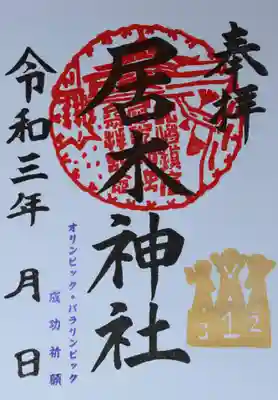 奉拝
居木神社
令和三年 月 日
オリンピック・パラリンピック
成功祈願
3 1 2